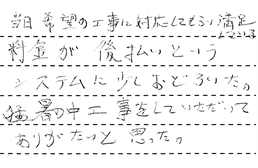 当日 希望の工事に対応してもらい満足している
料金が 後払いという
システムに少しおどろいた。
猛暑の中工事をしていただいて
ありがたいと 思った。